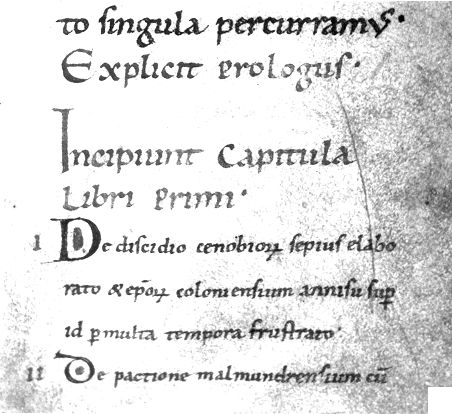 to singula percurramus.
Explicit prologus.
Incipiunt Capitula
Libri Primi.
I De discidio cenobioꝝ sepius elabo
rato & ep̄oꝝ coloniensium annisu sup̄
id ꝑ multa tempora frustrato.
II De pactione malmundrensium cū